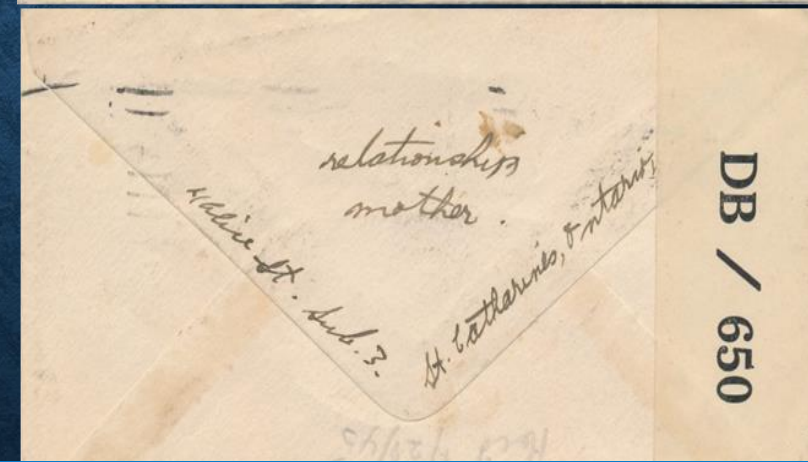 relationship
mother.
St. Sub. 3.
St. Catharines, Ontario,
DB / 650